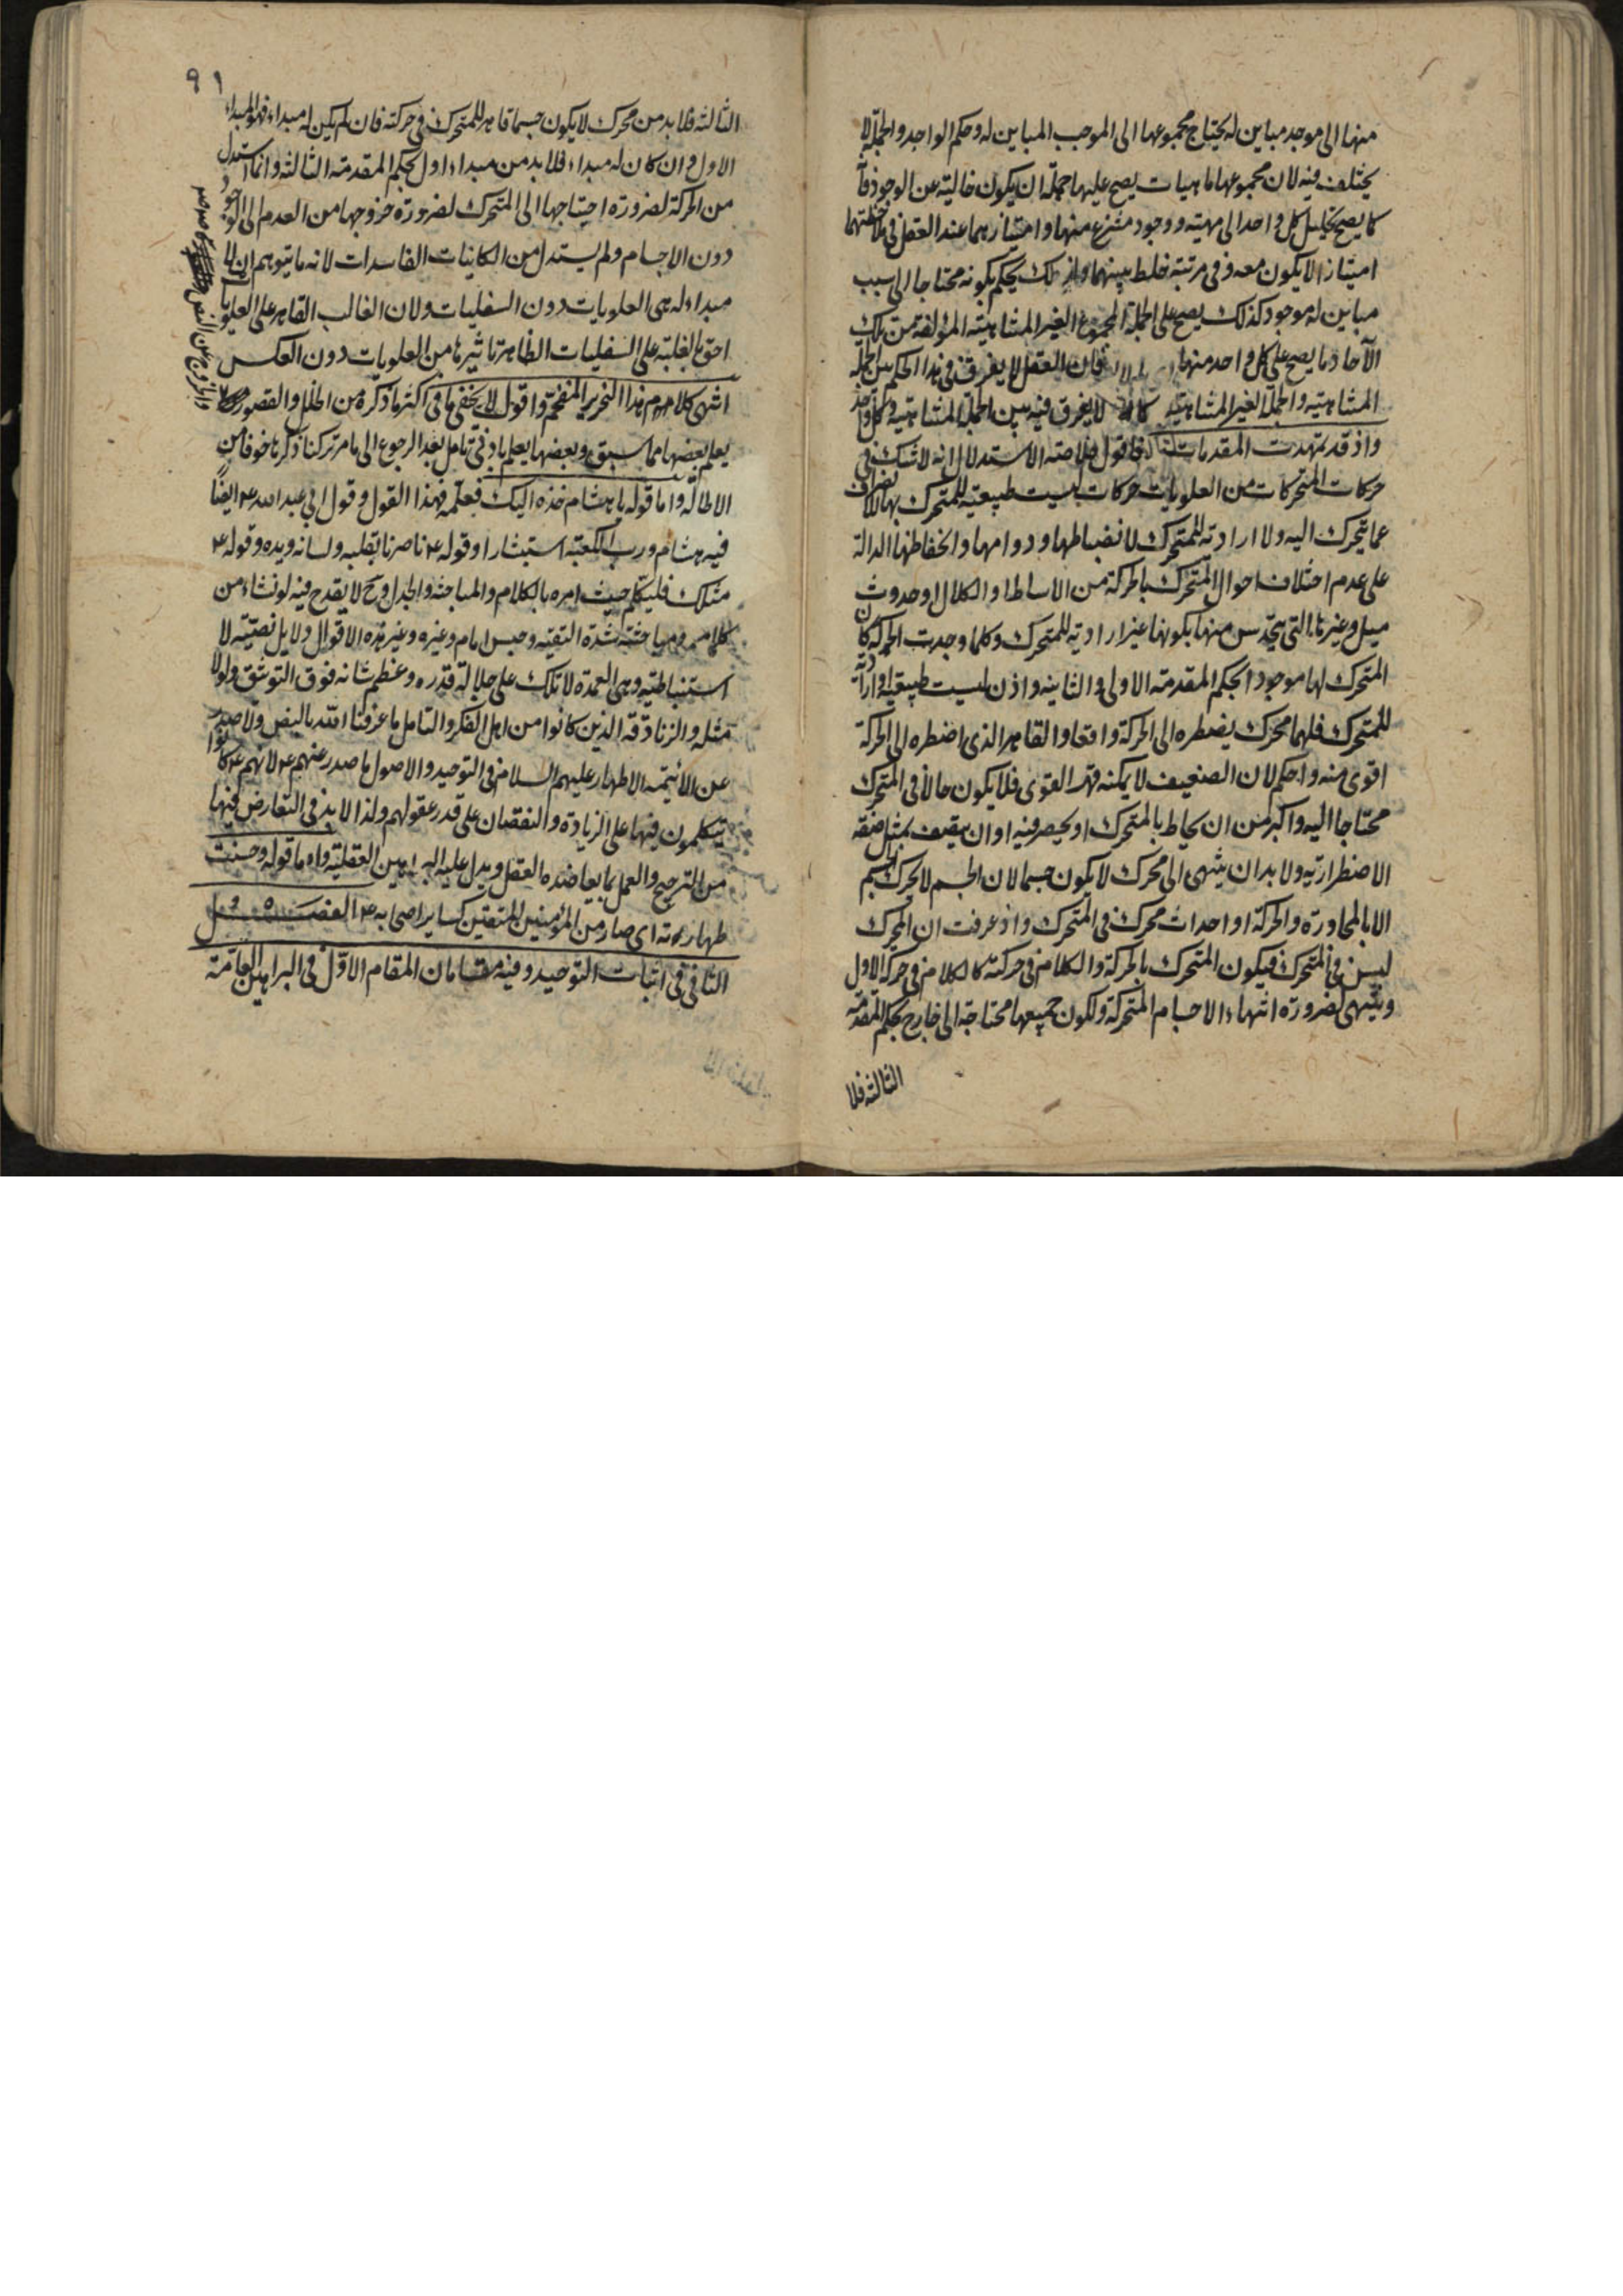 منها الى موجد مباين له يحتاج مجموعها الى الموجب المباين له وحكم الواحد والجملة لا
يختلف فيه لان مجموعها ماهيات يصح عليها جملة ان يكون خالية عن الوجود فا
كما يصح تحليل كل واحد الى مهيته ووجود منتزع منها وامتيازهما عند العقل في ملاحظتهما
امتيازا لا يكون معه وفي مرتبته خلط بينهما ولذلك يحكم بكونه محتاجا الى سبب
مباين له موجود كذلك يصح على الجملة المجموع الغير المتناهية المؤلفة من تلك
الآحاد ما يصح على كل واحد منها فان العقل لا يفرق في هذا الحكم بين الجملة
المتناهية والجملة الغير المتناهية كما لا يفرق فيه بين الجملة المتناهية وكل واحد
واذ قد تمهدت المقدمات الثلاث فاقول خلاصة الاستدلال انه لا شك في
حركات المتحركات من العلويات حركات ليست طبيعية للمتحرك بها لانصراف
عما يتحرك اليه ولا ارادية للمتحرك لانضباطها ودوامها وانحفاظها الدالة
على عدم اختلاف احوال المتحرك بالحركة من الاساطا والكلال وحدوث
ميل وغيرها التي يتحدس منها بكونها غير ارادية للمتحرك وكلما وجدت الحركة كان
المتحرك لها موجودا بحكم المقدمة الاولى والثانية واذن ليست طبيعية او ارادية
للمتحرك فلهما محرك يضطره الى الحركة واقعا والقاهر الذي اضطره الى الحركة
اقوى منه واحكم لان الضعيف لا يمكنه قهر القوى فلا يكون حالا في المتحرك
محتاجا اليه واكبر من ان يحاط بالمتحرك او يحصر فيه او ان يتصف بمثل صفته
الاضطرارية ولا بد ان ينتهى الى محرك لا يكون جسما لان الجسم لا يحرك الجسم
الا بالمجاورة والحركة او احداث محرك في المتحرك واذ عرفت ان المحرك
ليس في المتحرك فيكون المتحرك بالحركة والكلام في حركته كالكلام في حركة الاول
وينتهى لضرورة انتهاء الاجسام المتحركة ولكون جميعها محتاجة الى خارج بحكم المقدمة
الثالثة فلا
٩١
الثالثة فلا بد من محرك لا يكون جسما قاهر للمتحرك في حركته فان لم يكن له مبداء فهو المبداء
الاول وان كان له مبداء فلا بد من مبداء اول بحكم المقدمة الثالثة وانما استدل
من الحركة لضرورة احتياجها الى المتحرك لضرورة خروجها من العدم الى الوجود
دون الاجسام ولم يستدل من الكاينات الفاسدات لانه ما يتوهم ان لا
مبداء له هي العلويات دون السفليات ولان الغالب القاهر على العلويات
احق بالغلبة على السفليات الظاهرة تاثيرها من العلويات دون العكس
انتهى كلامه هذا النحرير المفخم واقول لا يخفى ما في اكثر ما ذكره من الخلل والقصور
يعلم بعضها مما سبق وبعضها يعلم بادنى تامل بعد الرجوع الى ما مر تركنا ذكرها خوفا من
الاطالة واما قوله يا هشام خذه اليك فعلمه فهذا القول وقول ابي عبد الله ع ايضا
فيه هشام ورب الكعبة استبشارا وقوله ع ناصرنا بقلبه ولسانه ويده وقوله ع
مثلك فليكلم حيث امره بالكلام والمباحثة والجدل وح لا يقدح فيه لو نشاء من
كلامه ومباحثته شدة التقية وحبس امام وغيره وغير هذه الاقوال دلايل نصيته لا
استنباطية وهي العمدة لا تلك على جلالة قدره وعظم شانه فوق التوثق ولولا
مثله والزنادقة الذين كانوا من اهل الفكر والتامل ما عرفنا الله بالنص ولا صدر
عن الائمة الاطهار عليهم السلام في التوحيد والاصول ما صدر عنهم ع لانهم ع كانوا
يتكلمون فيها على الزيادة والنقصان على قدر عقولهم ولذا لا بد في التعارض فيها
من الترجيح والعمل بما يعاضده العقل ويدل عليه البراهين العقلية واما قوله وحسنت
طهارته اى صار من المؤمنين المتقين كساير اصحابه ع الفصل
الثاني في اثبات التوحيد وفيه مقامان المقام الاول في البراهين العامة